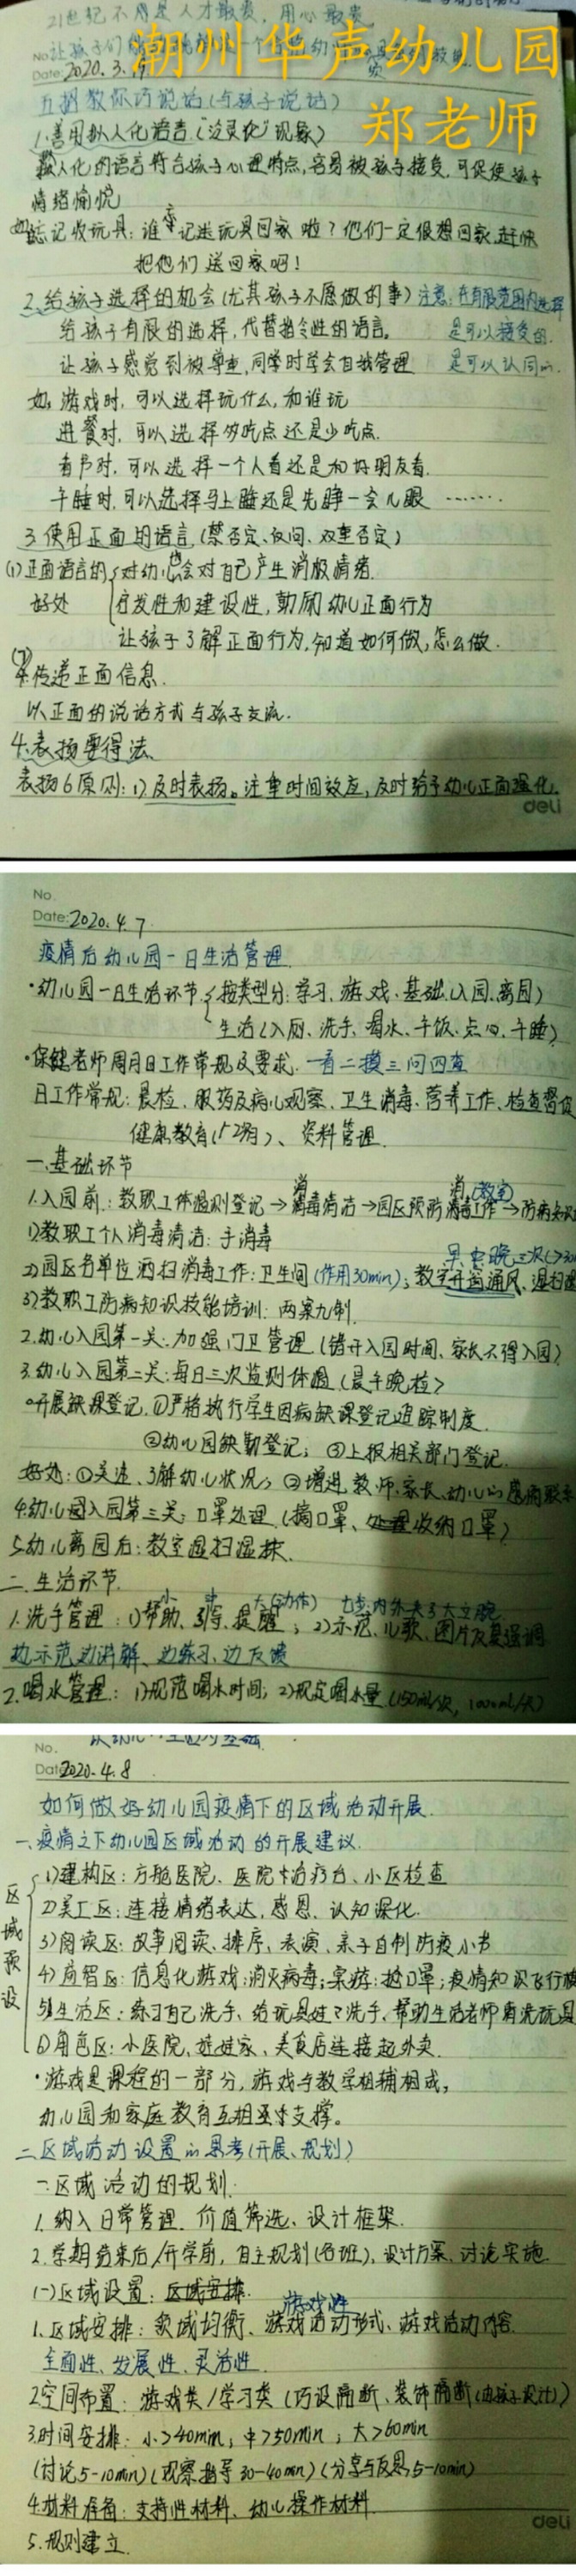 21世纪不再是人才最贵，用心最贵
潮州华声幼儿园
No.
Date: 2020.3.19
五招教你巧说话(与孩子说话)
郑老师
1.善用拟人化语言("泛灵论"现象)
拟人化的语言符合孩子心理特点,容易被孩子接受,可促使孩子
情绪愉悦
如忘记收玩具:谁忘记送玩具回家啦?他们一定很想回家,赶快
把他们送回家吧!
2.给孩子选择的机会(尤其孩子不愿做的事)注意:在有限范围内选择
给孩子有限的选择,代替指令性的语言。 是可以接受的.
让孩子感觉到被尊重,同学时学会自我管理 是可以认同的.
如:游戏时,可以选择玩什么,和谁玩
进餐时,可以选择多吃点还是少吃点.
看书时,可以选择一个人看还是和好朋友看.
午睡时,可以选择马上睡还是先静一会儿眼……
3.使用正面的语言(禁否定、反问、双重否定)
(1)正面语言的 对幼儿会对自己产生消极情绪.
好处 启发性和建设性,勉励幼儿正面行为
让孩子了解正面行为,知道如何做,怎么做.
(2)传递正面信息.
以正面的说话方式与孩子交流.
4.表扬要得法
表扬6原则:1)及时表扬。注重时间效应,及时给予幼儿正面强化.
deli
No.
Date: 2020.4.7
疫情后幼儿园一日生活管理
·幼儿园一日生活环节 按类型分:学习、游戏、基础(入园、离园)
生活(入厕、洗手、喝水、午饭、点心、午睡)
·保健老师周月日工作常规及要求.一看二摸三问四查
日工作常规:晨检、服药及病儿观察、卫生消毒、营养工作、检查督促
健康教育、资料管理
一.基础环节
1.入园前:教职工体温测登记→消毒清洁→园区预防消毒工作→防病知识
(教室)
1)教职工个人消毒清洁:手消毒
早中晚三次(>30
2)园区各单位洒扫消毒工作:卫生间(作用30min);教室开窗通风、湿扫
3)教职工防病知识技能培训:两案九制.
2.幼儿入园第一关:加强门卫管理(错开入园时间、家长不得入园)
3.幼儿入园第二关:每日三次监测体温(晨午晚检)
开展缺课登记.①严格执行学生因病缺课登记追踪制度.
②幼儿园缺勤登记;③上报相关部门登记.
好处:①关注、了解幼儿状况;②增进教师、家长、幼儿的感情联系
4.幼儿园入园第三关:口罩处理(摘口罩、处理收纳口罩)
5.幼儿离园后:教室湿扫湿抹.
二.生活环节.
小 中 大(动作) 七步:内外夹弓大立腕
1.洗手管理:1)帮助、引导、提醒;2)示范、儿歌、图片反复强调
边示范边讲解、边练习、边反馈
2.喝水管理:1)规范喝水时间;2)规定喝水量(150ml/次,1000ml/天)
No.
Date 2020.4.8
如何做好幼儿园疫情下的区域活动开展.
一.疫情之下幼儿园区域活动的开展建议.
区域预设
1)建构区:方舱医院、医院+治疗台、小区检查
2)美工区:连接情绪表达、感恩、认知深化.
3)阅读区:故事阅读、排序、表演、亲子自制防疫小书
4)益智区:信息化游戏:消灭病毒;桌游:抢口罩;疫情知识飞行棋
5)生活区:练习自己洗手、给玩具娃娃洗手、帮助生活老师清洗玩具
6)角色区:小医院、娃娃家、美食店连接起外卖.
·游戏是课程的一部分,游戏与教学相辅相成,
幼儿园和家庭教育互相支撑。
二.区域活动设置的思考(开展、规划)
一.区域活动的规划.
1.纳入日常管理、价值筛选、设计框架.
2.学期结束后/开学前,自主规划(各班)、设计方案、讨论实施.
(一)区域设置:区域安排.
游戏性
1.区域安排:领域均衡、游戏活动形式、游戏活动内容.
全面性、发展性、灵活性.
2.空间布置:游戏类/学习类(巧设隔断、装饰隔断(由孩子设计))
3.时间安排:小>40min;中>50min;大>60min
(讨论5-10min)(观察指导30-40min)(分享与反思5-10min)
4.材料准备:支持性材料、幼儿操作材料
deli
5.规则建立.